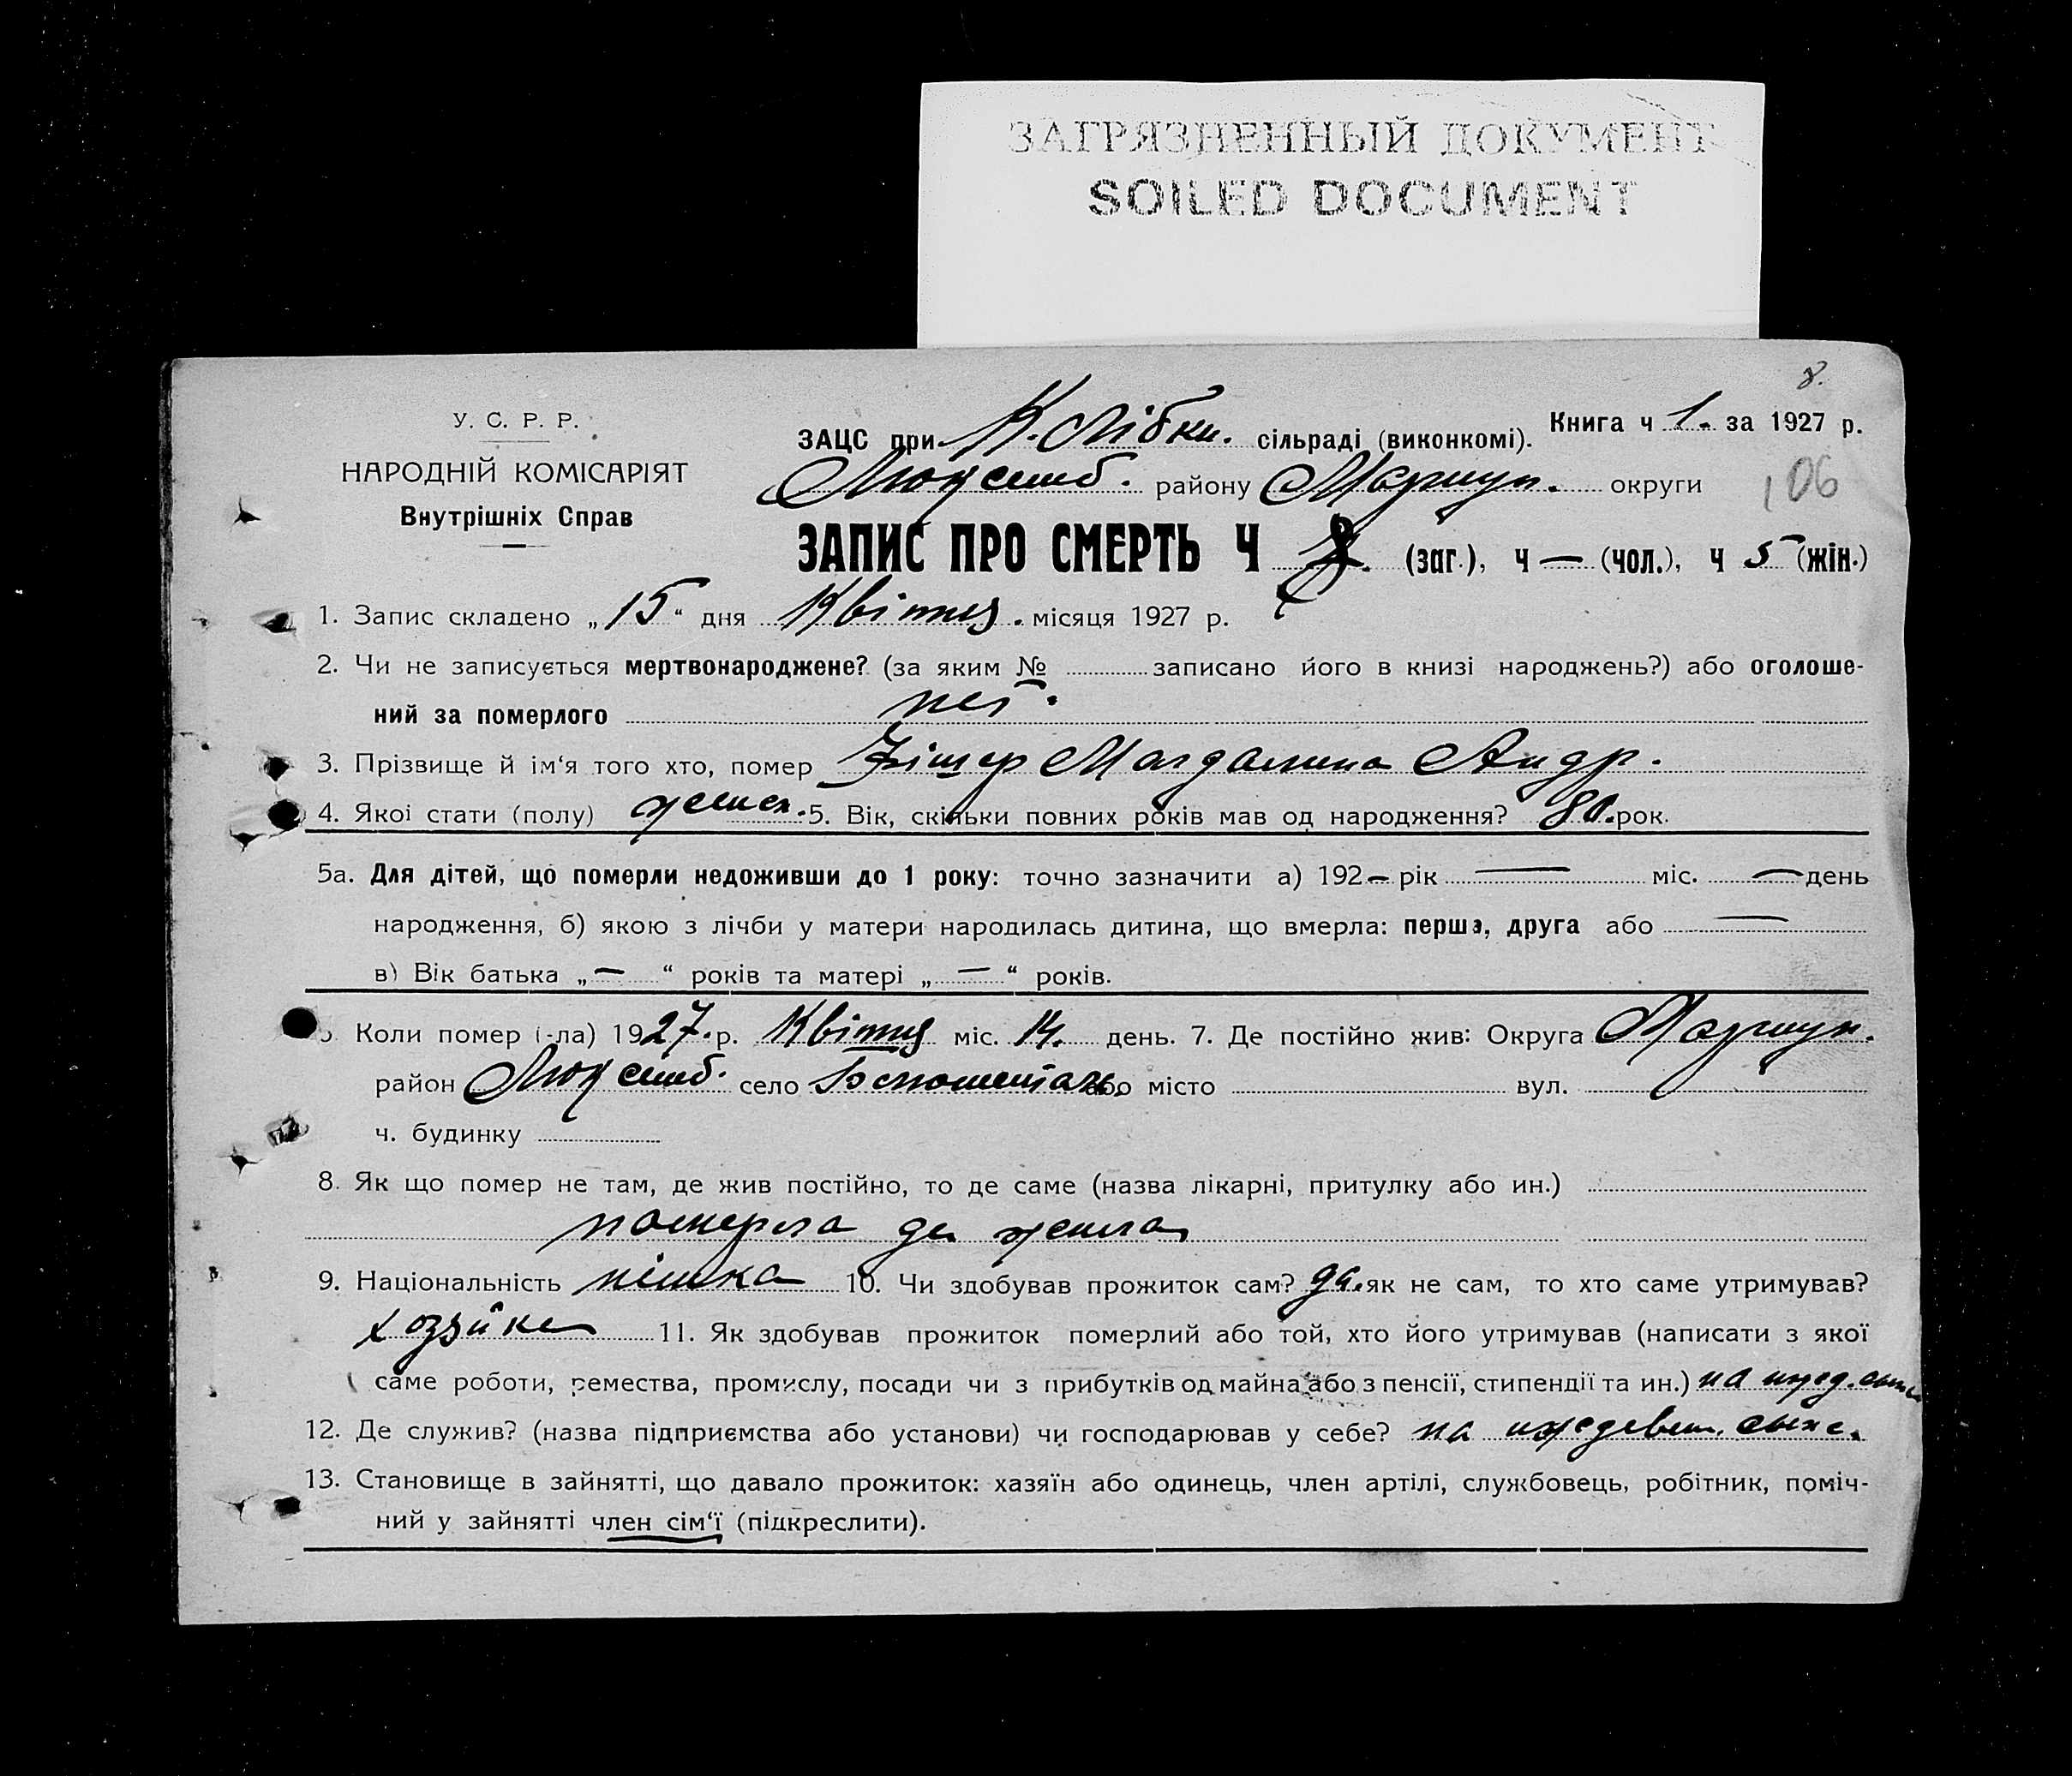 ЗАГРЯЗНЕННЫЙ ДОКУМЕНТ
SOILED DOCUMENT
8.
У. С. Р. Р.
НАРОДНІЙ КОМІСАРІЯТ
Внутрішніх Справ
Книга ч 1. за 1927 р.
ЗАЦС при К. Лібкн. сільраді (виконкомі).
Люксемб. району Маріуп. округи
106
ЗАПИС ПРО СМЕРТЬ Ч 8. (заг.), ч — (чол.), ч 5 (жін.)
1. Запис складено „15“ дня Квітня. місяця 1927 р.
2. Чи не записується мертвонароджене? (за яким № записано його в книзі народжень?) або оголоше-
ний за померлого нет.
3. Прізвище й ім‘я того хто, помер Фішер Магдалина Андр.
4. Якої стати (полу) женск. 5. Вік, скільки повних років мав од народження? 80. рок.
5а. Для дітей, що померли недоживши до 1 року: точно зазначити а) 192— рік — міс. — день
народження, б) якою з лічби у матери народилась дитина, що вмерла: перша, друга або —
в) Вік батька „—“ років та матері „—“ років.
Коли помер (-ла) 1927. р. Квітня міс. 14. день. 7. Де постійно жив: Округа Маріуп.
район Люксемб. село або місто вул.
ч. будинку
8. Як що помер не там, де жив постійно, то де саме (назва лікарні, притулку або ин.)
померла де жила
9. Національність німка 10. Чи здобував прожиток сам? да. як не сам, то хто саме утримував?
хозяйка 11. Як здобував прожиток померлий або той, хто його утримував (написати з якої
саме роботи, ремества, промислу, посади чи з прибутків од майна або з пенсії, стипендії та ин.) на ижд. сына
12. Де служив? (назва підприємства або установи) чи господарював у себе? на иждевен. сына.
13. Становище в зайнятті, що давало прожиток: хазяїн або одинець, член артілі, службовець, робітник, поміч-
ний у зайнятті член сім‘ї (підкреслити).